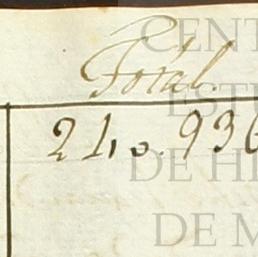 Total.
240.936
CENT
ESTU
DE HI
DE M